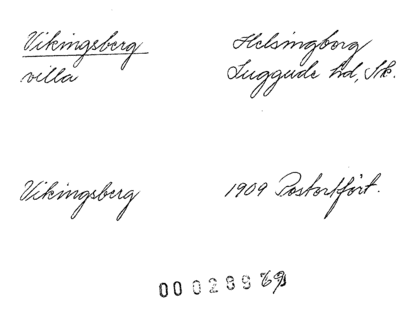 Vikingsberg Helsingborg
villa Luggude hd, Sk.
Vikingsberg 1909 Postortfört.